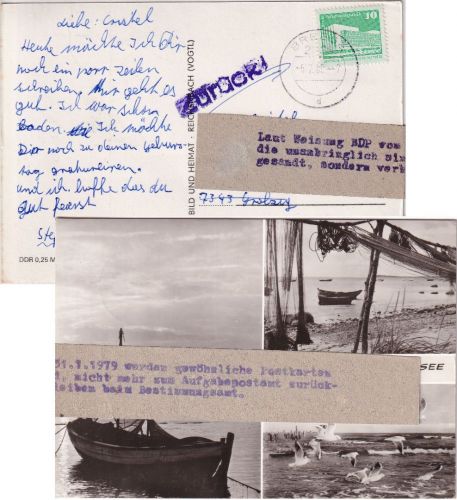 Liebe: Cristel
Heute möchte Ich Dir
noch ein par Zeilen
schreiben. Mir geht es
gut. Ich war schon
baden. Ich möchte
Dir noch zu deinen Geburs-
tag
und ich hoffe das du
gut feierst
DDR 0,25 M
BILD UND HEIMAT · REICHENBACH (VOGTL)
Zurück!
10
DDR
7343
Laut Weisung BDP vom
die unanbringlich sin
gesandt, sondern verb
31.1.1979 werden gewöhnliche Postkarten
, nicht mehr zum Aufgabepostamt zurück-
leiben beim Bestimmungsamt.
SEE